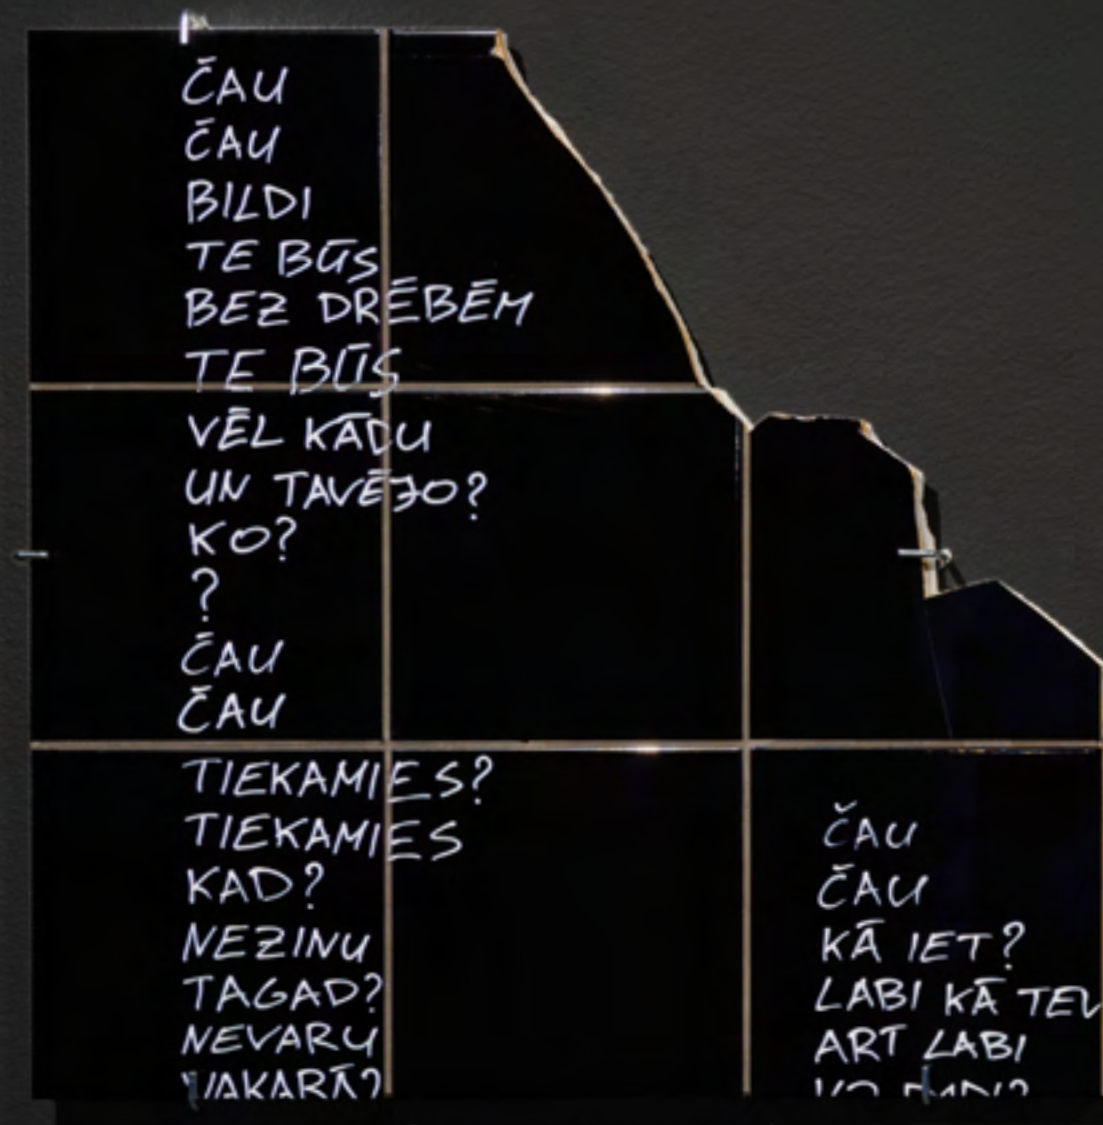 ČAU
ČAU
BILDI
TE BŪS
BEZ DRĒBĒM
TE BŪS
VĒL KĀDU
UN TAVĒJO?
KO?
?
ČAU
ČAU
TIEKAMIES?
TIEKAMIES
KAD?
NEZINU
TAGAD?
NEVARU
VAKARĀ?
ČAU
ČAU
KĀ IET?
LABI KĀ TEV
ART LABI